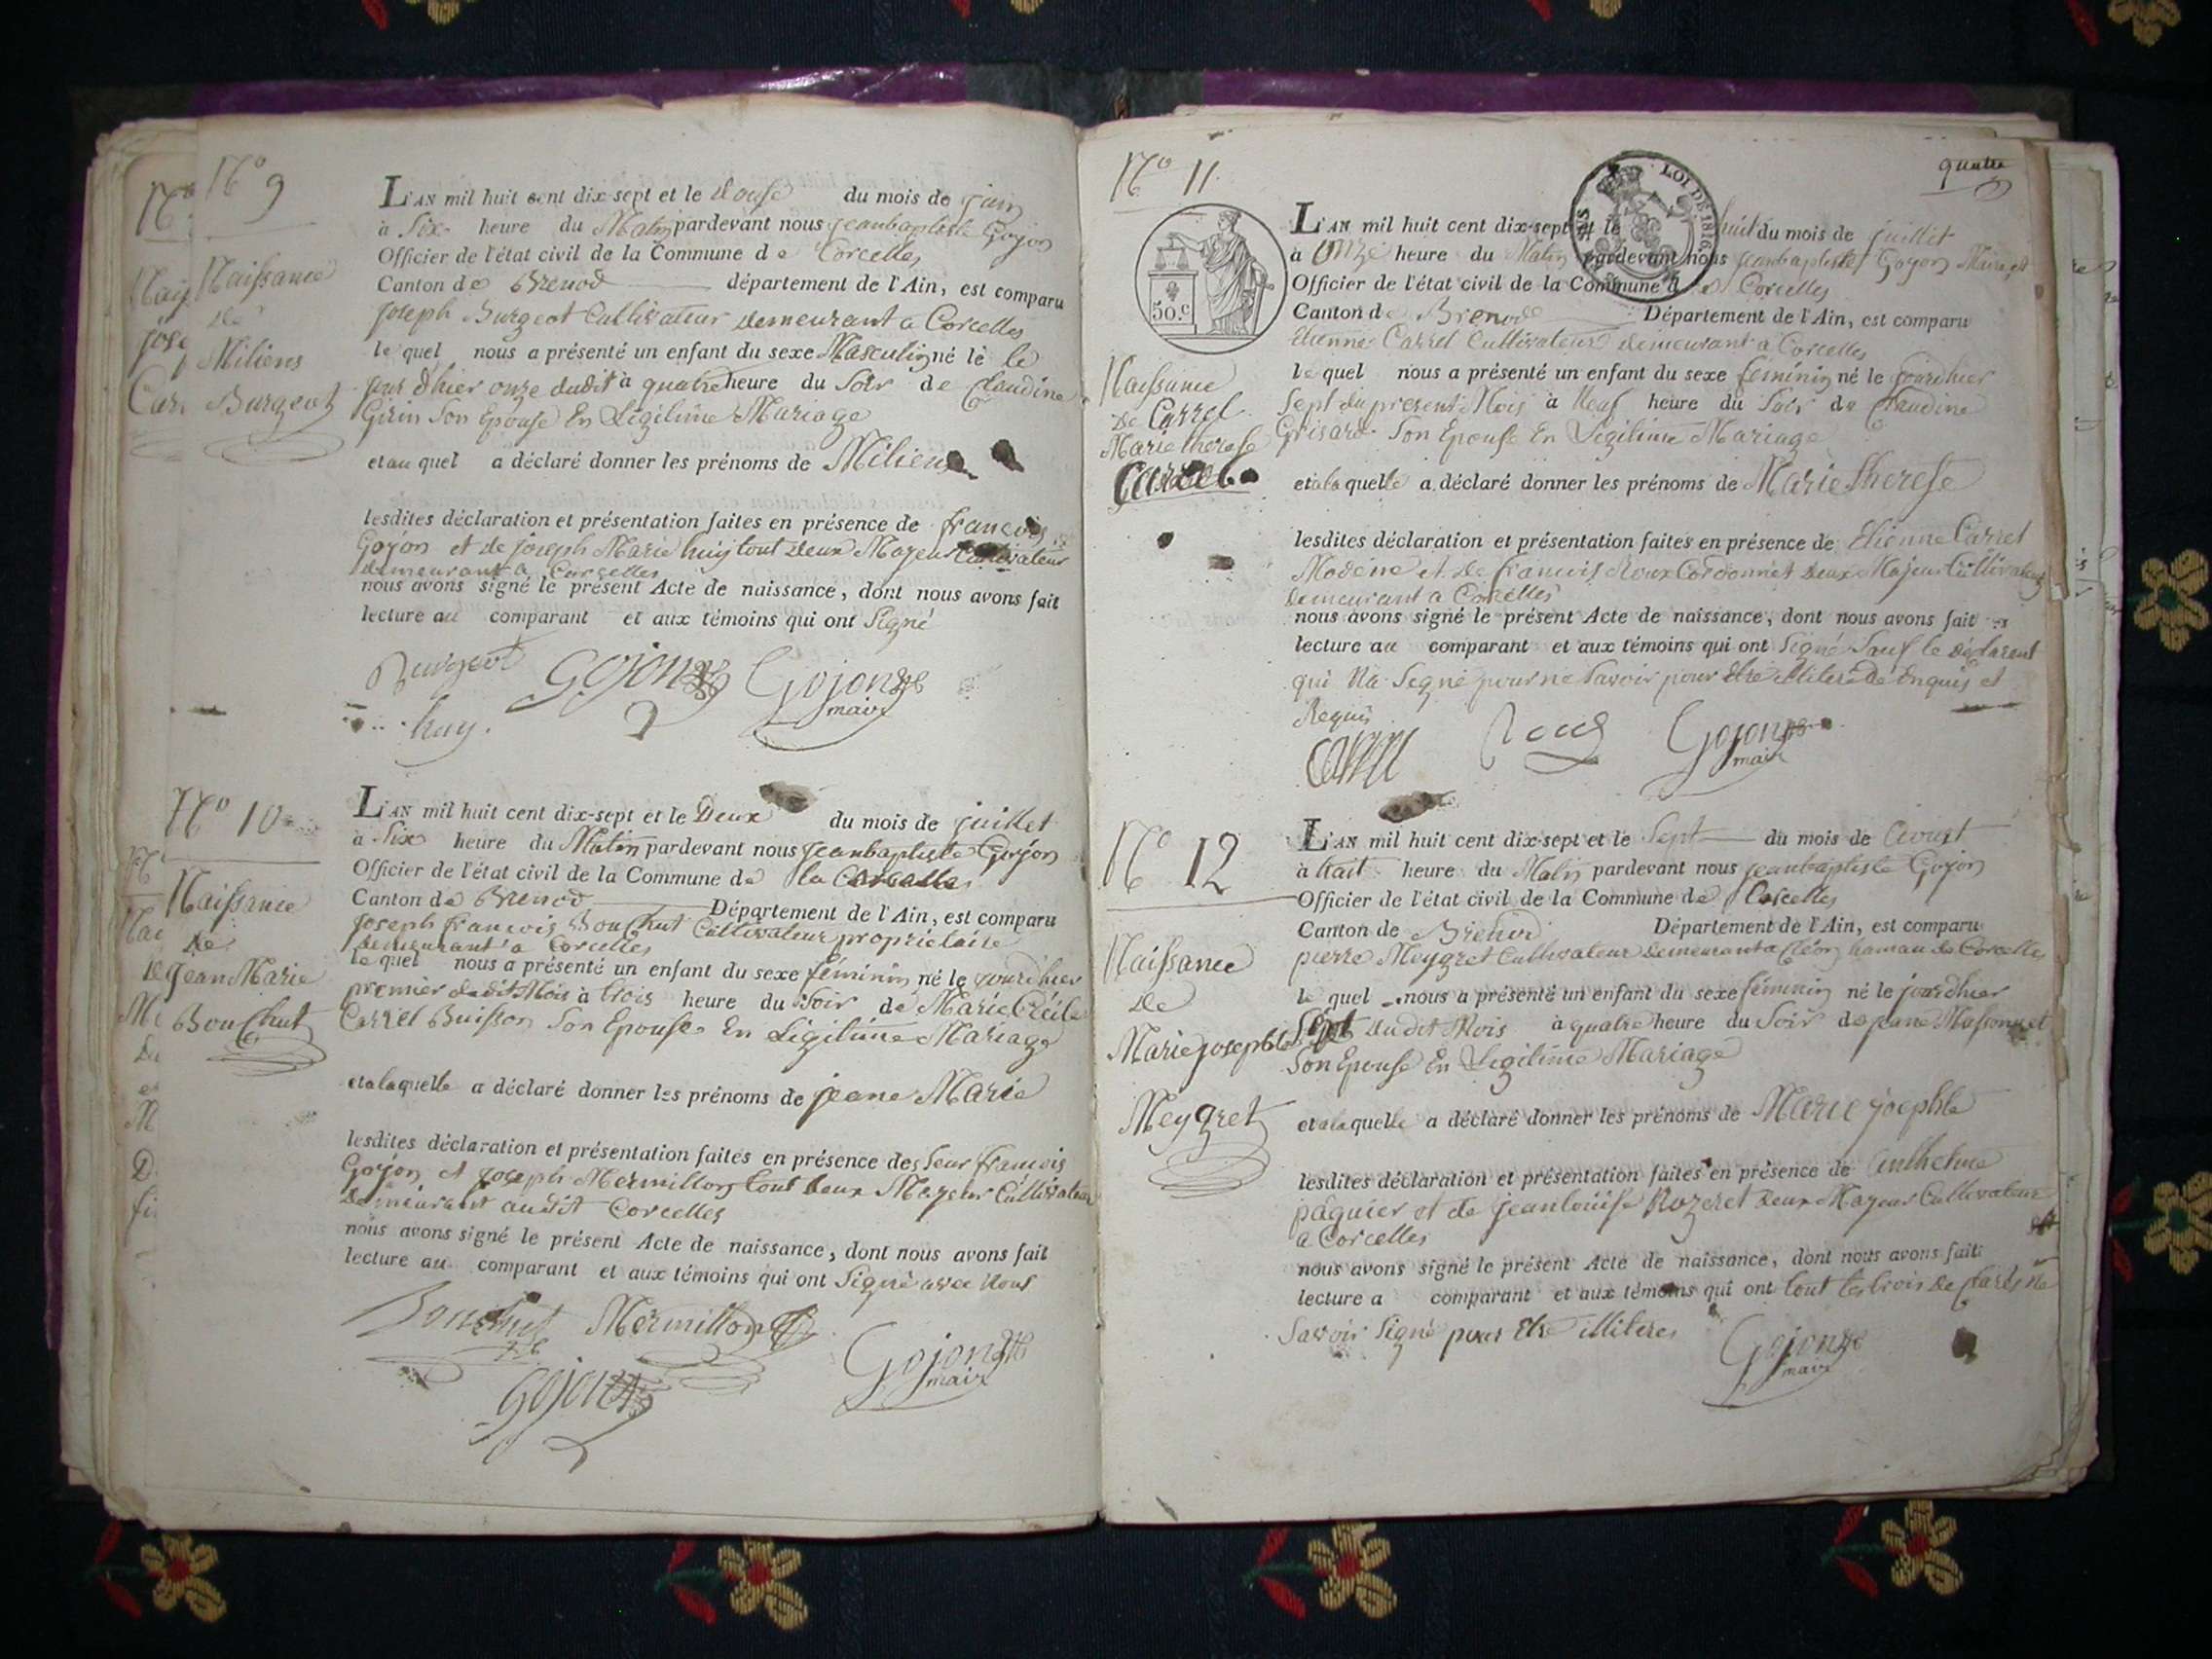 N.o 9
Naissance
de
Miliens
Burgeot
L'AN mil huit cent dix-sept et le douse du mois de juin
à Six heure du Matin pardevant nous jeanbaptiste Gojon
Officier de l'état civil de la Commune de Corcelles
Canton de Brenod département de l'Ain, est comparu
joseph Burgeot Cultivateur demeurant a Corcelles
le quel nous a présenté un enfant du sexe Masculin né le le
jour d'hier onze dudit à quatre heure du Soir de Claudine
Girin Son Epouse En Légitime Mariage
et au quel a déclaré donner les prénoms de Miliens
lesdites déclaration et présentation faites en présence de francois
Gojon et de joseph Marie huy tout deux Majeur Cultivateur
demeurant a Corcelles
nous avons signé le présent Acte de naissance, dont nous avons fait
lecture au comparant et aux témoins qui ont Signé
Burgeot Gojon Gojon
maire
huy.
N.o 10
Naissance
de
jean Marie
Bouchut
L'AN mil huit cent dix-sept et le Deux du mois de juillet
à Six heure du Matin pardevant nous jeanbaptiste Gojon
Officier de l'état civil de la Commune de la Corcelles
Canton de Brenod Département de l'Ain, est comparu
joseph francois Bouchut Cultivateur propriétaire
demeurant a Corcelles
le quel nous a présenté un enfant du sexe féminin né le jourdhier
premier dudit Mois à trois heure du Soir de Marie Cécile
Carrel Buisson Son Epouse En Légitime Mariage
et a laquelle a déclaré donner les prénoms de jeane Marie
lesdites déclaration et présentation faites en présence des Seur francois
Gojon et joseph Mermillon tout deux Majeur Cultivateur
demeurant audit Corcelles
nous avons signé le présent Acte de naissance, dont nous avons fait
lecture au comparant et aux témoins qui ont Signé avec nous
Bouchut Mermillon
Gojon Gojon
maire
quatre
N.o 11
LOI DE 1816
50.c
Naissance
De Carrel
Marie therese
Carrel
L'AN mil huit cent dix-sept et le huit du mois de juillet
à Onze heure du Matin pardevant nous jeanbaptiste Gojon Maire et
Officier de l'état civil de la Commune de Corcelles
Canton de Brenod Département de l'Ain, est comparu
Etienne Carrel Cultivateur demeurant a Corcelles
le quel nous a présenté un enfant du sexe féminin né le jourdhier
Sept du present Mois à Neuf heure du Soir de Claudine
Grisard Son Epouse En Légitime Mariage
et a la quelle a déclaré donner les prénoms de Marie therese
lesdites déclaration et présentation faites en présence de Etienne Carrel
Modene et de francois Roux Cordonnet deux Majeur Cultivateur
demeurant a Corcelles
nous avons signé le présent Acte de naissance, dont nous avons fait
lecture au comparant et aux témoins qui ont Signé Sauf le déclarent
qui Na Segné pour ne Savoir pour Etre illiteré de Enquis et
Requis
Carrel Roux Gojon
maire
N.o 12
Naissance
De
Marie josephte
Meygret
L'AN mil huit cent dix-sept et le Sept du mois de Aoust
à huit heure du Matin pardevant nous jeanbaptiste Gojon
Officier de l'état civil de la Commune de Corcelles
Canton de Brenod Département de l'Ain, est comparu
pierre Meygret Cultivateur demeurant a Cléon hamau de Corcelles
le quel nous a présenté un enfant du sexe féminin né le jourdhier
Sept dudit Mois à quatre heure du Soir de jeane Massonnet
Son Epouse En Legitime Mariage
et a la quelle a déclaré donner les prénoms de Marie joephte
lesdites déclaration et présentation faites en présence de Anthelme
pâquier et de jeanlouise Rozeret deux Majeur Cultivateur
a Corcelles
nous avons signé le présent Acte de naissance, dont nous avons fait
lecture a comparant et aux témoins qui ont tout les trois déclarés ne
Savoir Signé pour Etre illiteres
Gojon
maire